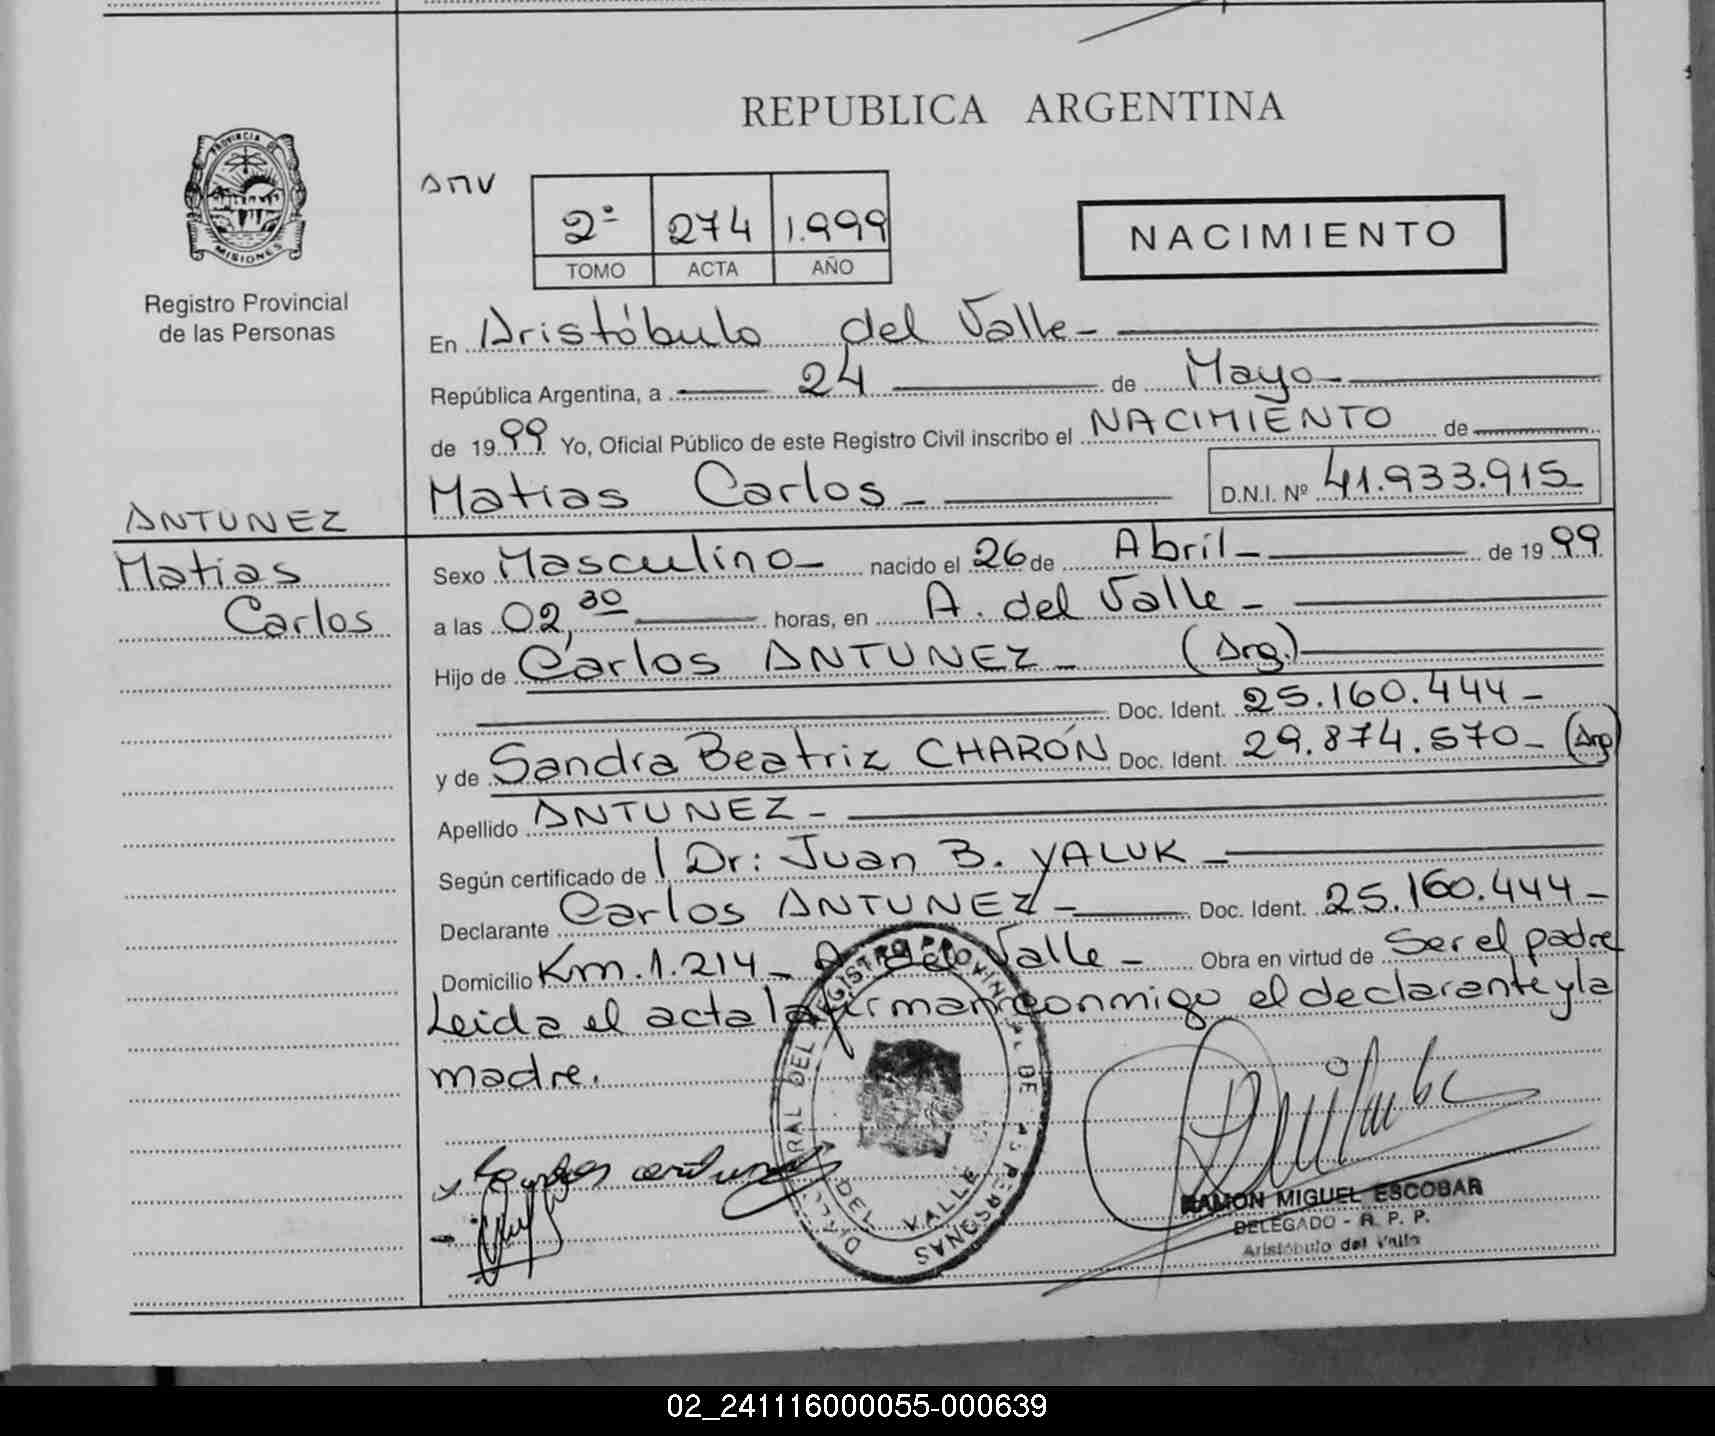 REPUBLICA ARGENTINA
PROVINCIA DE
MISIONES
Registro Provincial
de las Personas
2º 274 1.999
TOMO ACTA AÑO
NACIMIENTO
En Aristóbulo del Valle -
República Argentina, a 24 de Mayo -
de 1999 Yo, Oficial Público de este Registro Civil inscribo el NACIMIENTO de
Matias Carlos - D.N.I. Nº 41.933.915
ANTUNEZ
Matias
Carlos
Sexo Masculino - nacido el 26 de Abril - de 1999
a las 02,30 horas, en A. del Valle -
Hijo de Carlos ANTUNEZ - (Arg.)
Doc. Ident. 25.160.444 -
y de Sandra Beatriz CHARÓN Doc. Ident. 29.874.570 - (Arg)
Apellido ANTUNEZ -
Según certificado de Dr: Juan B. YALUK -
Declarante Carlos ANTUNEZ - Doc. Ident. 25.160.444 -
Domicilio Km. 1.214 - A. del Valle - Obra en virtud de Ser el padre
Leida el acta la firman conmigo el declarante y la
madre.
REGISTRO PROVINCIAL DE LAS PERSONAS
DEL VALLE
RAMON MIGUEL ESCOBAR
DELEGADO - R. P. P.
Aristóbulo del Valle
02_241116000055-000639